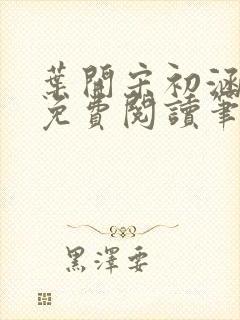 葉開宋初涵
免費閱讀筆
黑澤要